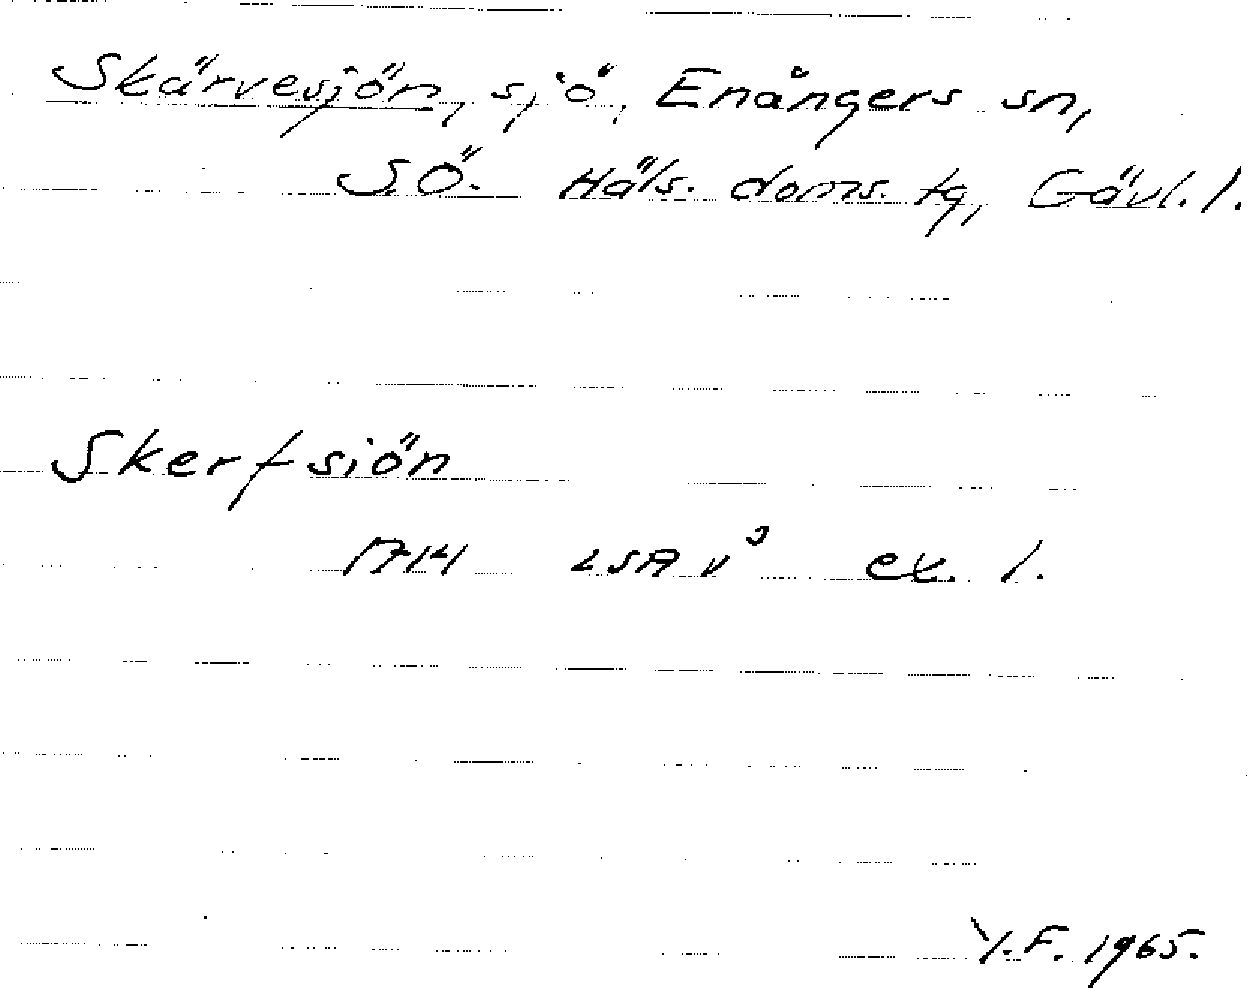 Skärvesjön, sjö, Enångers sn,
S.Ö. Häls. doms. tg, Gävl. l.
Skerfsiön
1714 LSA V³ ex. 1.
Y.F. 1965.